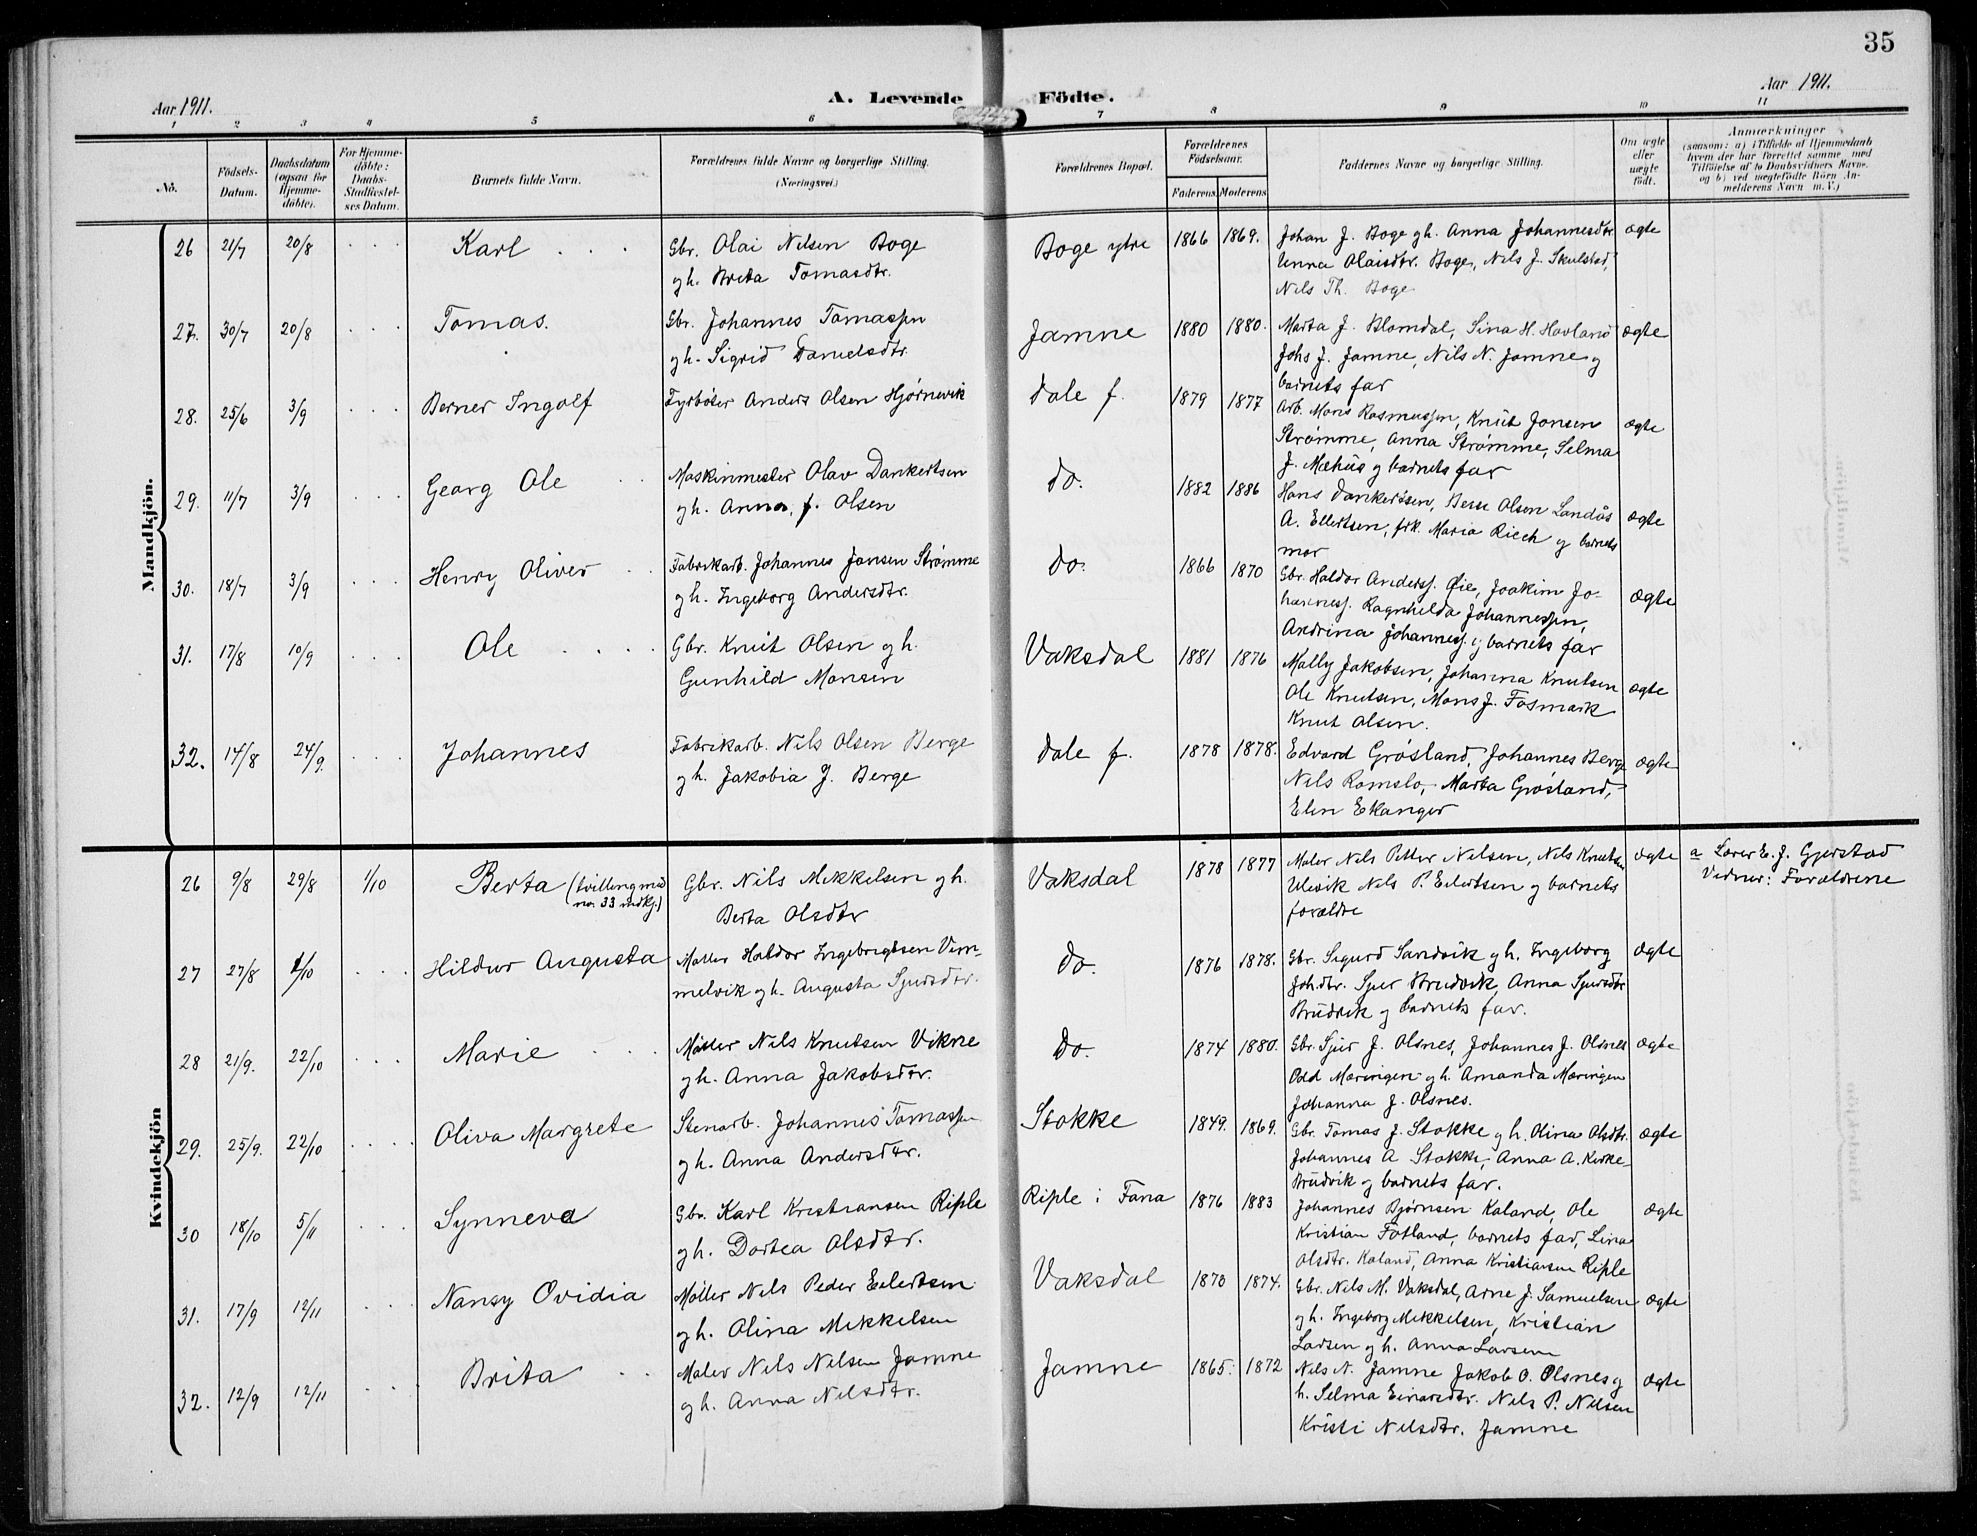 35
Aar 1911.
A. Levende Födte.
Aar 1911.
1 2 3 4 5 6 7 8 9 10 11
No.
Födsels-Datum.
Daabsdatum (ogsaa for Hjemme-döbte).
For Hjemme-döbte: Daabs-Stadfæstel-ses Datum.
Barnets fulde Navn.
Forældrenes fulde Navne og borgerlige Stilling. (Næringsvei.)
Forældrenes Bopæl.
Forældrenes Födselsaar.
Faderens Moderens
Faddernes Navne og borgerlige Stilling.
Om ægte eller uægte födt.
Anmærkninger
(saasom: a) i Tilfælde af Hjemmedaab
hvem der har forrettet samme med
Tilföielse af to Daabsvidners Navne.
og b) ved uægtefödte Börn An-
melderens Navn m. V.)
Mandkjön.
26 21/7 20/8 Karl Gbr. Olai Nilsen Boge Boge ytre 1866 1869. Johan J. Boge gh. Anna Johannesdtr ægte
gh. Brita Tomasdtr. Anna Olaisdtr. Boge, Nils J. Skulstad,
Nils Th. Boge
27. 30/7 20/8 Tomas. Gbr. Johannes Tomassen Jamne 1880 1880. Marta J. Blomdal, Sina H. Hovland ægte
gh. Sigrid Danielsdtr. Johs J. Jamne, Nils N. Jamne og
barnets far
28. 25/6 3/9 Berner Ingolf Fyrbøter Anders Olsen Hjørnevik Dale f. 1879 1877 Arb. Mons Rasmussen, Knut Jonsen ægte
Strømme, Anna Strømme, Selma
J. Mæhus og barnets far
29. 11/7 3/9 Georg Ole Maskinmester Olav Dankertsen do. 1882 1886 Hans Dankertsen, Olsen Landås ægte
gh. Anna, f. Olsen A. Ellertsen, frk. Maria Riech og barnets
mor
30. 18/7 3/9 Henry Oliver Fabrikarb. Johannes Jonsen Strømme do. 1866 1870 Gbr. Haldor Anderss. Øie, Joakim Jo- ægte
gh. Ingeborg Andersdtr. hanness. Ragnhilda Johannessen,
Andrina Johanness. og barnets far
31. 17/8 10/9 Ole Gbr. Knut Olsen og h. Vaksdal 1881 1876 Mally Jakobsen, Johanna Knutsen ægte
Gunhild Monsen Ole Knutsen, Mons J. Fosmark
Knut Olsen.
32. 14/8 24/9. Johannes Fabrikarb. Nils Olsen Berge Dale f. 1878 1878. Edvard Grøsland, Johannes Berge ægte
gh. Jakobia J. Berge Nils Romslo, Marta Grøsland,
Elen Ekanger
Kvindekjön
26 9/8 29/8 1/10 Berta (tvilling med no. 33 mdkj.) Gbr. Nils Mikkelsen gh. Vaksdal 1878 1877 Maler Nils Petter Nilsen, Nils Knutsen ægte a Lærer E. J. Gjerstad
Berta Olsdtr Ulevik Nils P. Eilertsen og barnets Vidner: Forældrene
forældre
27 27/8 1/10 Hildur Augusta Møller Haldor Ingebrigtsen Vem- do. 1876 1878. Gbr. Sigurd Sandvik gh. Ingeborg ægte
melvik gh. Augusta Sjursdtr. Joh.dtr. Sjur Brudvik, Anna Sjursdtr
Brudvik og barnets far.
28 21/9. 22/10 Marie Møller Nils Knutsen Vikne Do. 1874 1880. Gbr. Sjur J. Olsnes, Johannes J. Olsnes ægte
gh. Anna Jakobsdtr. Odd Mæringen gh. Amanda Mæringen
Johanna J. Olsnes.
29. 25/9. 22/10 Oliva Margrete Stenarb. Johannes Tomassen Stokke 1849. 1869. Gbr. Tomas J. Stokke gh. Olina Olsdtr. ægte
gh. Anna Andersdtr. Johannes A Stokke, Anna A. Kirke-
Brudvik og barnets far.
30 18/10 5/11 Synneva Gbr. Karl Kristiansen Riple Riple i Fana 1876 1883 Johannes Bjørnsen Kaland, Ole ægte
gh. Dortea Olsdtr. Kristian Fotland, barnets far, Lina
Olsdtr. Kaland, Anna Kristiansen Riple
31. 17/9 12/11 Nansy Ovidia Møller Nils Peder Eilertsen Vaksdal 1870 1874. Gbr. Nils M. Vaksdal, Arne J. Samuelsen ægte
gh. Olina Mikkelsen gh. Ingeborg Mikkelsen, Kristian
Larsen gh. Anna Larsen
32. 12/9 12/11 Brita Maler Nils Nilsen Jamne Jamne 1865. 1872 Nils N. Jamne Jakob O. Olsnes og ægte
gh. Anna Nilsdtr. h. Selma Einarsdtr. Nils P. Nilsen
Kristi Nilsdtr. Jamne